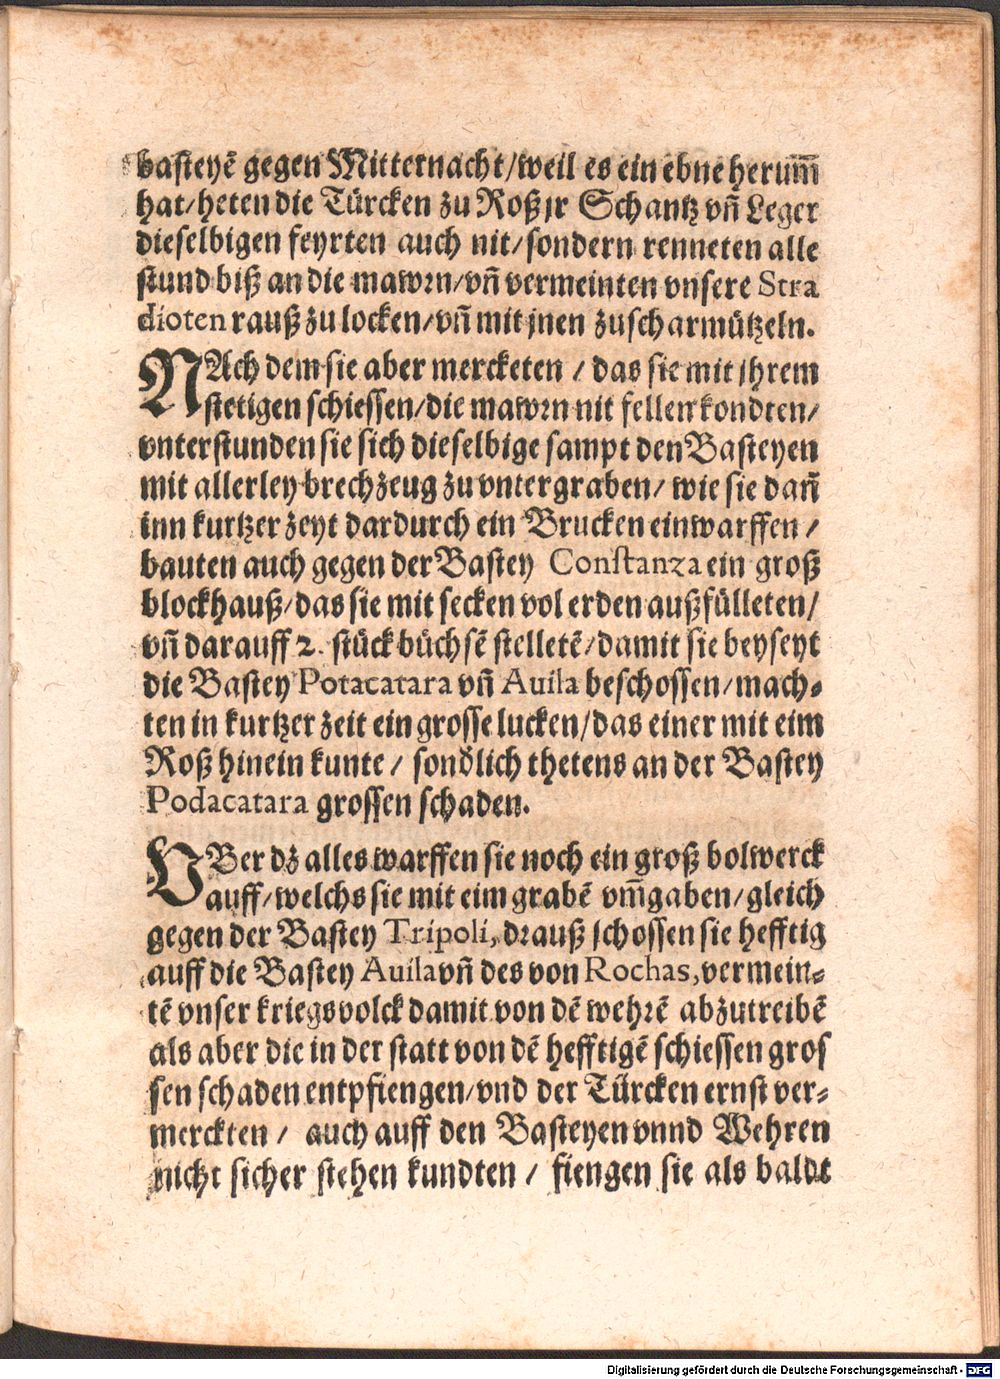 basteyẽ gegen Mitternacht/weil es ein ebne herum̃
hat/heten die Türcken zu Roß jr Schantz vñ Leger
dieselbigen feyrten auch nit/sondern renneten alle
stund biß an die mawrn/vñ vermeinten vnsere Stra
dioten rauß zu locken/vñ mit jnen zuscharmützeln.
NAch dem sie aber mercketen / das sie mit jhrem
stetigen schiessen/die mawrn nit fellen kondten/
vnterstunden sie sich dieselbige sampt den Basteyen
mit allerley brechzeug zu vntergraben/ wie sie dañ
inn kurtzer zeyt dardurch ein Brucken einwarffen /
bauten auch gegen der Bastey Constanza ein groß
blockhauß/das sie mit secken vol erden außfülleten/
vñ darauff 2. stück büchsẽ stelletẽ/damit sie beyseyt
die Bastey Potacatara vñ Auila beschossen/mach-
ten in kurtzer zeit ein grosse lucken/das einer mit eim
Roß hinein kunte / sondlich thetens an der Bastey
Podacatara grossen schaden.
VBer dz alles warffen sie noch ein groß bolwerck
auff/welchs sie mit eim grabẽ vm̃gaben/gleich
gegen der Bastey Tripoli, drauß schossen sie hefftig
auff die Bastey Auila vñ des von Rochas, vermein-
tẽ vnser kriegsvolck damit von dẽ wehrẽ abzutreibẽ
als aber die in der statt von dẽ hefftigẽ schiessen gros
sen schaden entpfiengen/vnd der Türcken ernst ver-
merckten / auch auff den Basteyen vnnd Wehren
nicht sicher stehen kundten / fiengen sie als baldt
Digitalisierung gefördert durch die Deutsche Forschungsgemeinschaft - DFG